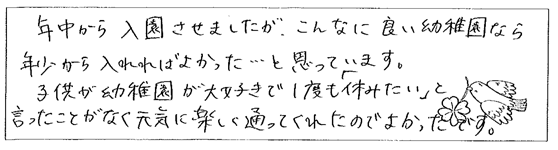 年中から入園させましたが、こんなに良い幼稚園なら
年少から入れればよかった…と思っています。
子供が幼稚園が大好きで1度も「休みたい」と
言ったことがなく元気に楽しく通ってくれたのでよかったです。